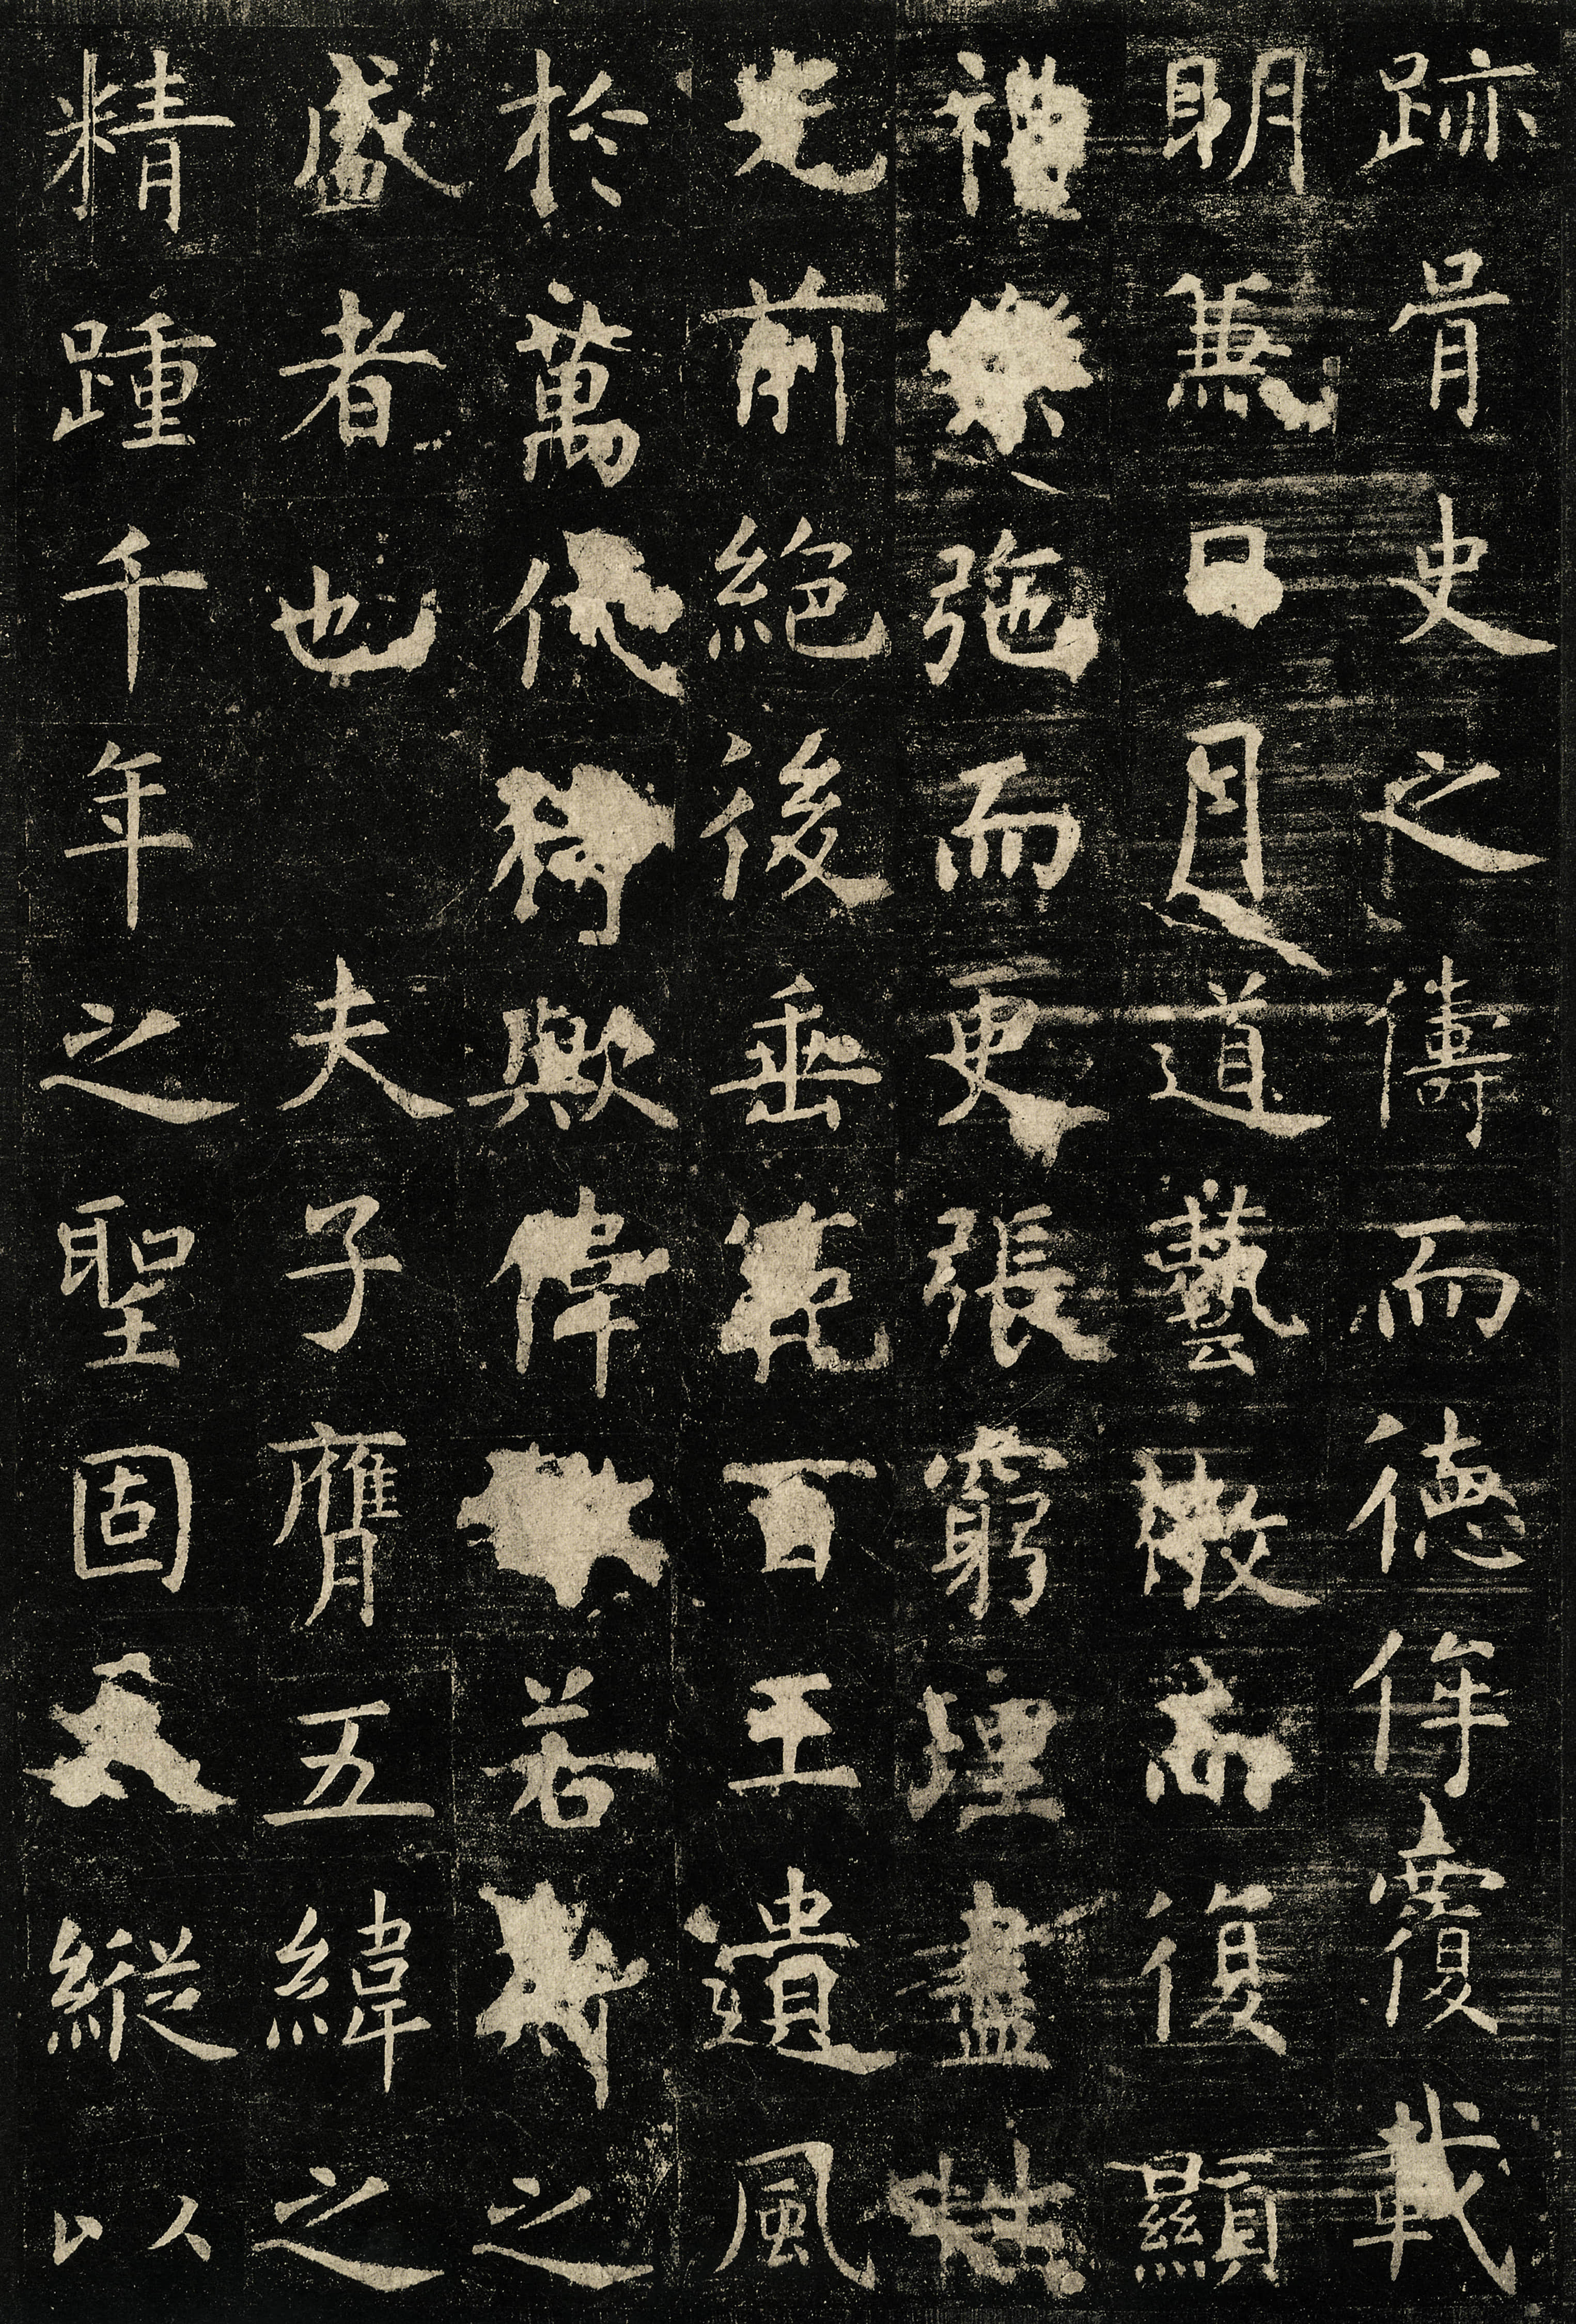 跡胥史之儔而德侔覆載
明兼日月道藝微而復顯
禮樂弛而更張窮理盡性
光前絕後垂範百王遺風
於萬代猗歟偉若斯之
盛者也夫子膺五緯之
精踵千年之聖固天縱以